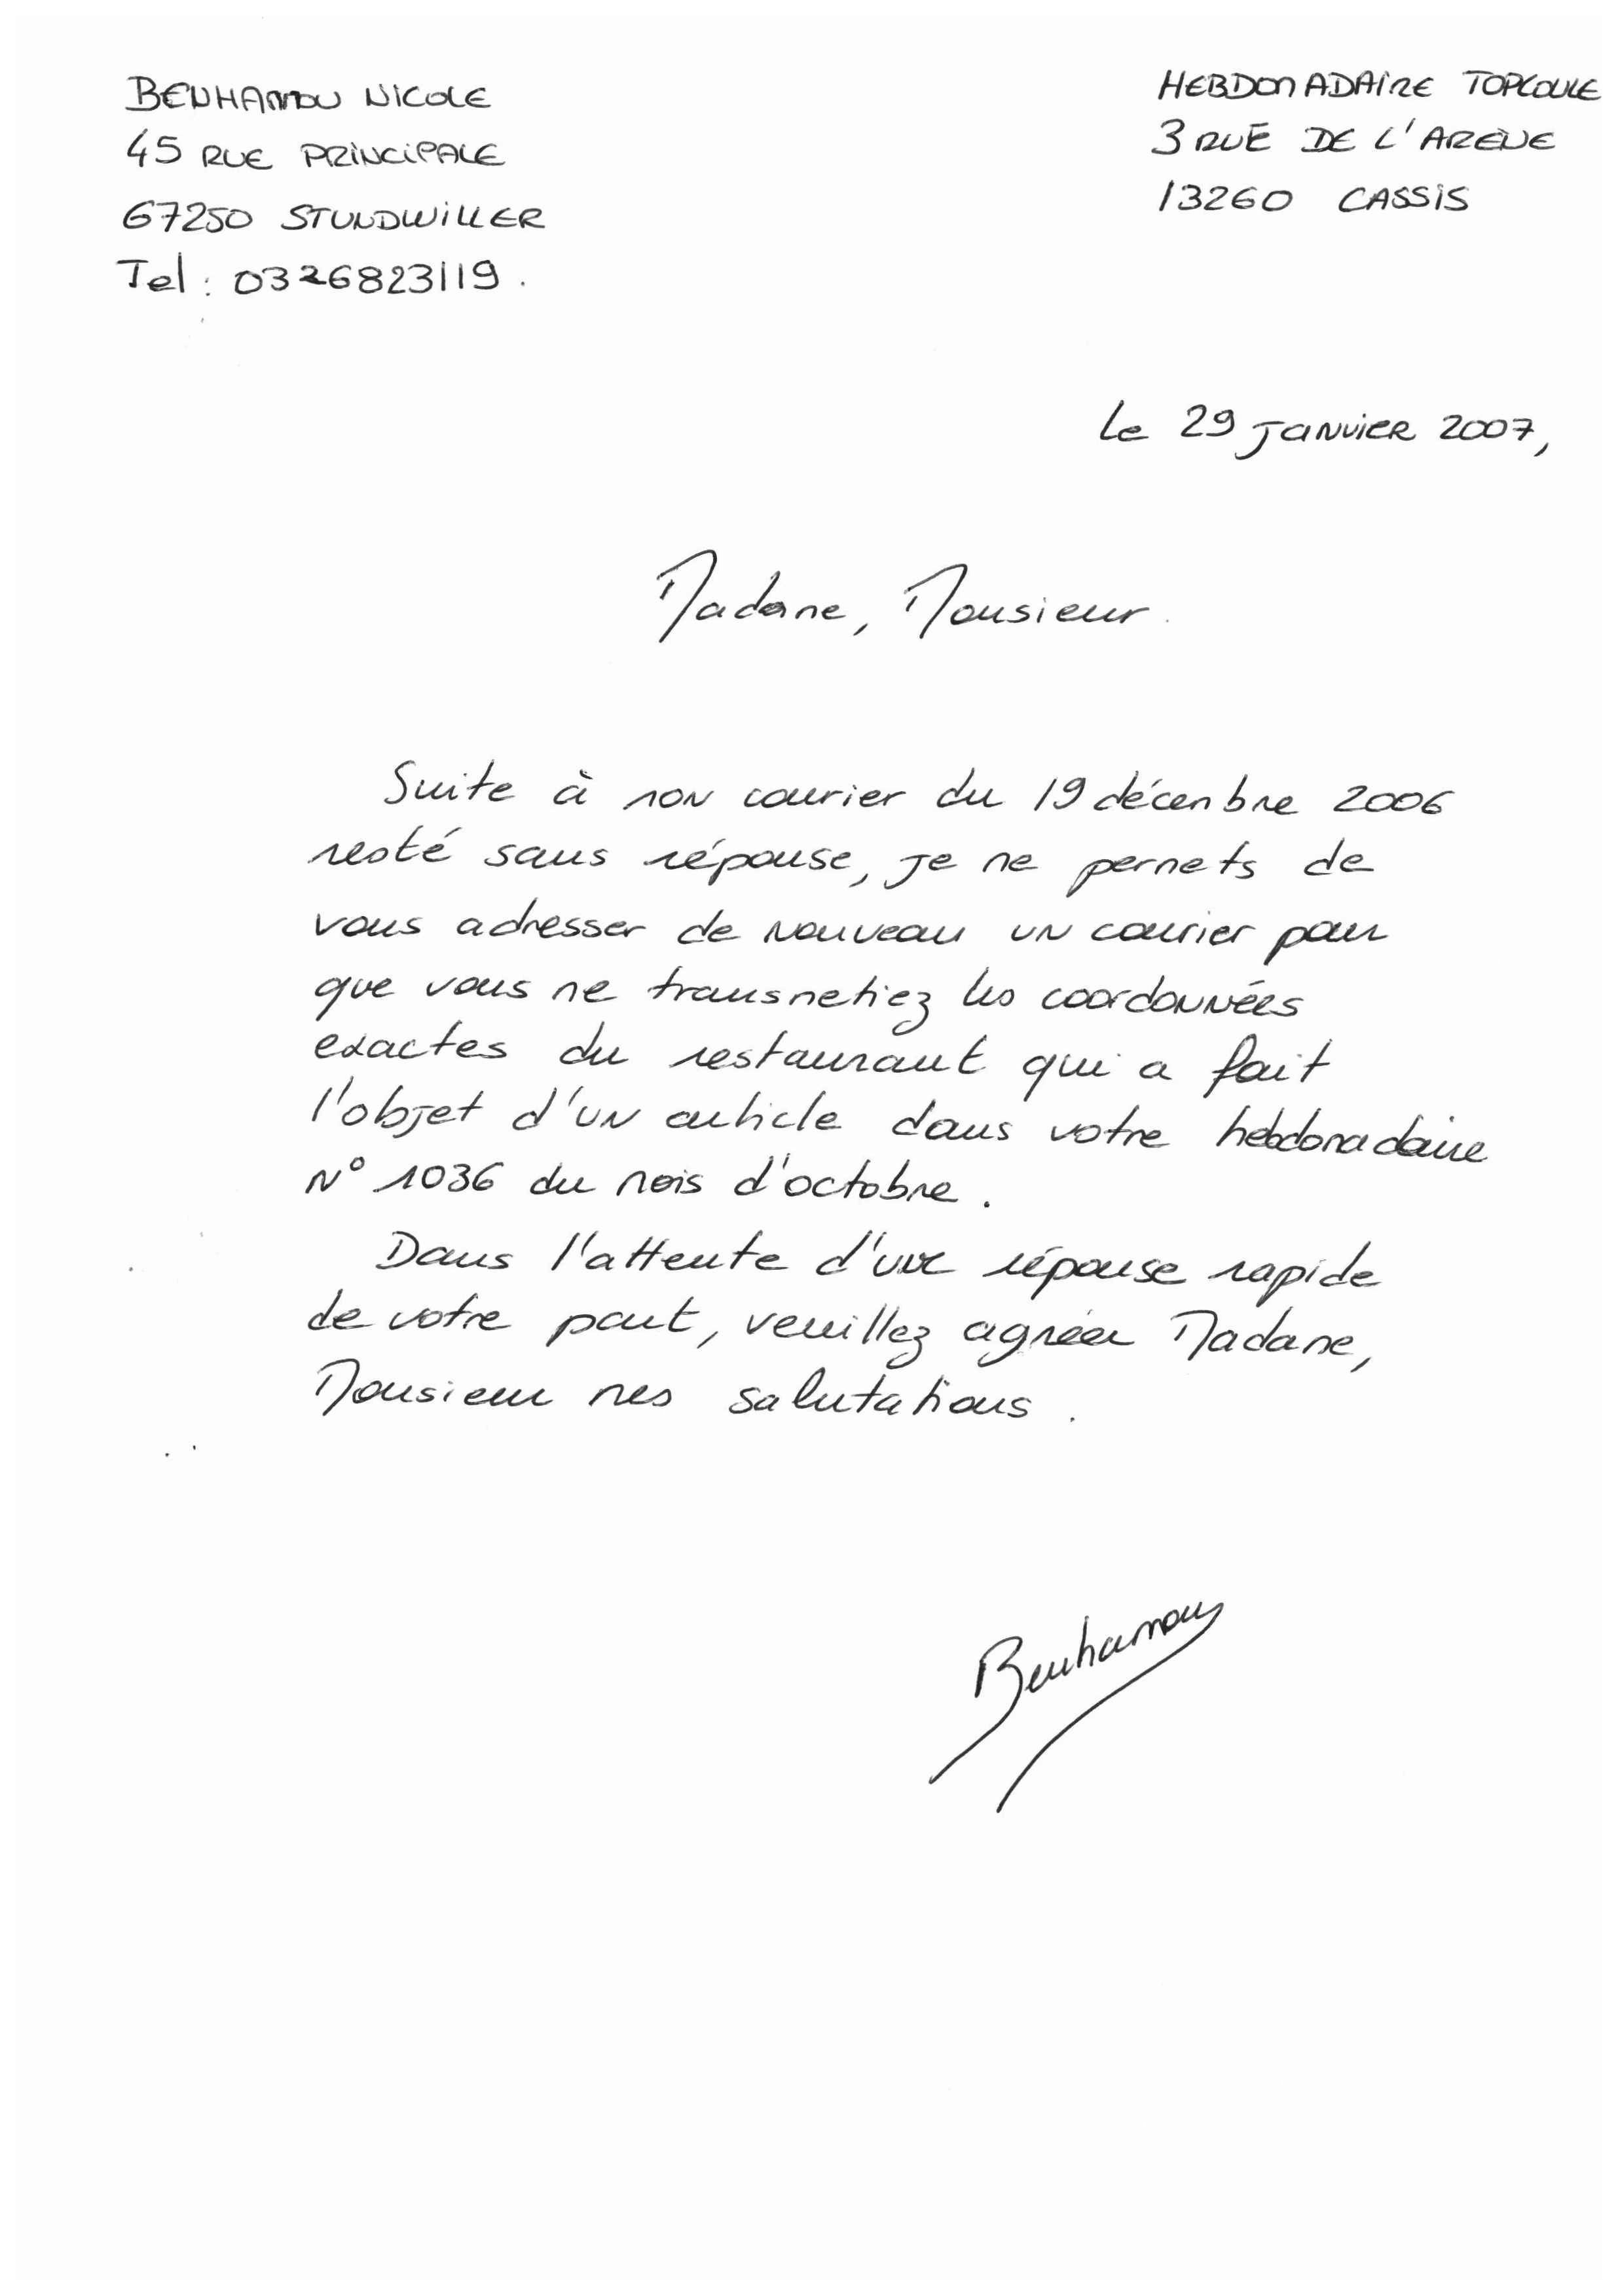 BENHAMOU NICOLE
45 RUE PRINCIPALE
67250 STUNDWILLER
Tel : 0326823119.
HEBDOMADAIRE TOPCOULE
3 RUE DE L'ARENE
13260 CASSIS
Le 29 janvier 2007,
Madame, Monsieur.
Suite à mon courier du 19 décembre 2006
resté sans réponse, je me permets de
vous adresser de nouveau un courier pour
que vous me transmetiez les coordonnées
exactes du restaurant qui a fait
l'objet d'un article dans votre hebdomadaire
N° 1036 du mois d'octobre.
Dans l'attente d'une réponse rapide
de votre part, veuillez agréer Madame,
Monsieur mes salutations.
Benhamou